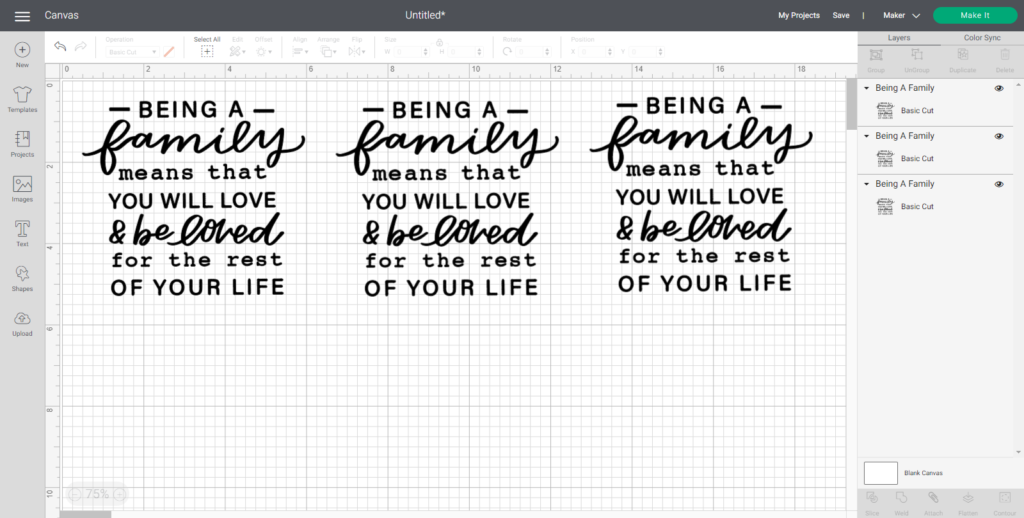 Canvas
Untitled*
My Projects Save | Maker Make It
New
Templates
Projects
Images
Text
Shapes
Upload
Operation
Basic Cut
Select All
Edit
Offset
Align
Arrange
Flip
Size
W 0 H 0
Rotate
0
Position
X 0 Y 0
0 2 4 6 8 10 12 14 16 18
0
2
4
6
8
10
— BEING A —
family
means that
YOU WILL LOVE
& be loved
for the rest
OF YOUR LIFE
— BEING A —
family
means that
YOU WILL LOVE
& be loved
for the rest
OF YOUR LIFE
— BEING A —
family
means that
YOU WILL LOVE
& be loved
for the rest
OF YOUR LIFE
75%
Layers Color Sync
Group UnGroup Duplicate Delete
Being A Family
Basic Cut
Being A Family
Basic Cut
Being A Family
Basic Cut
Blank Canvas
Slice Weld Attach Flatten Contour